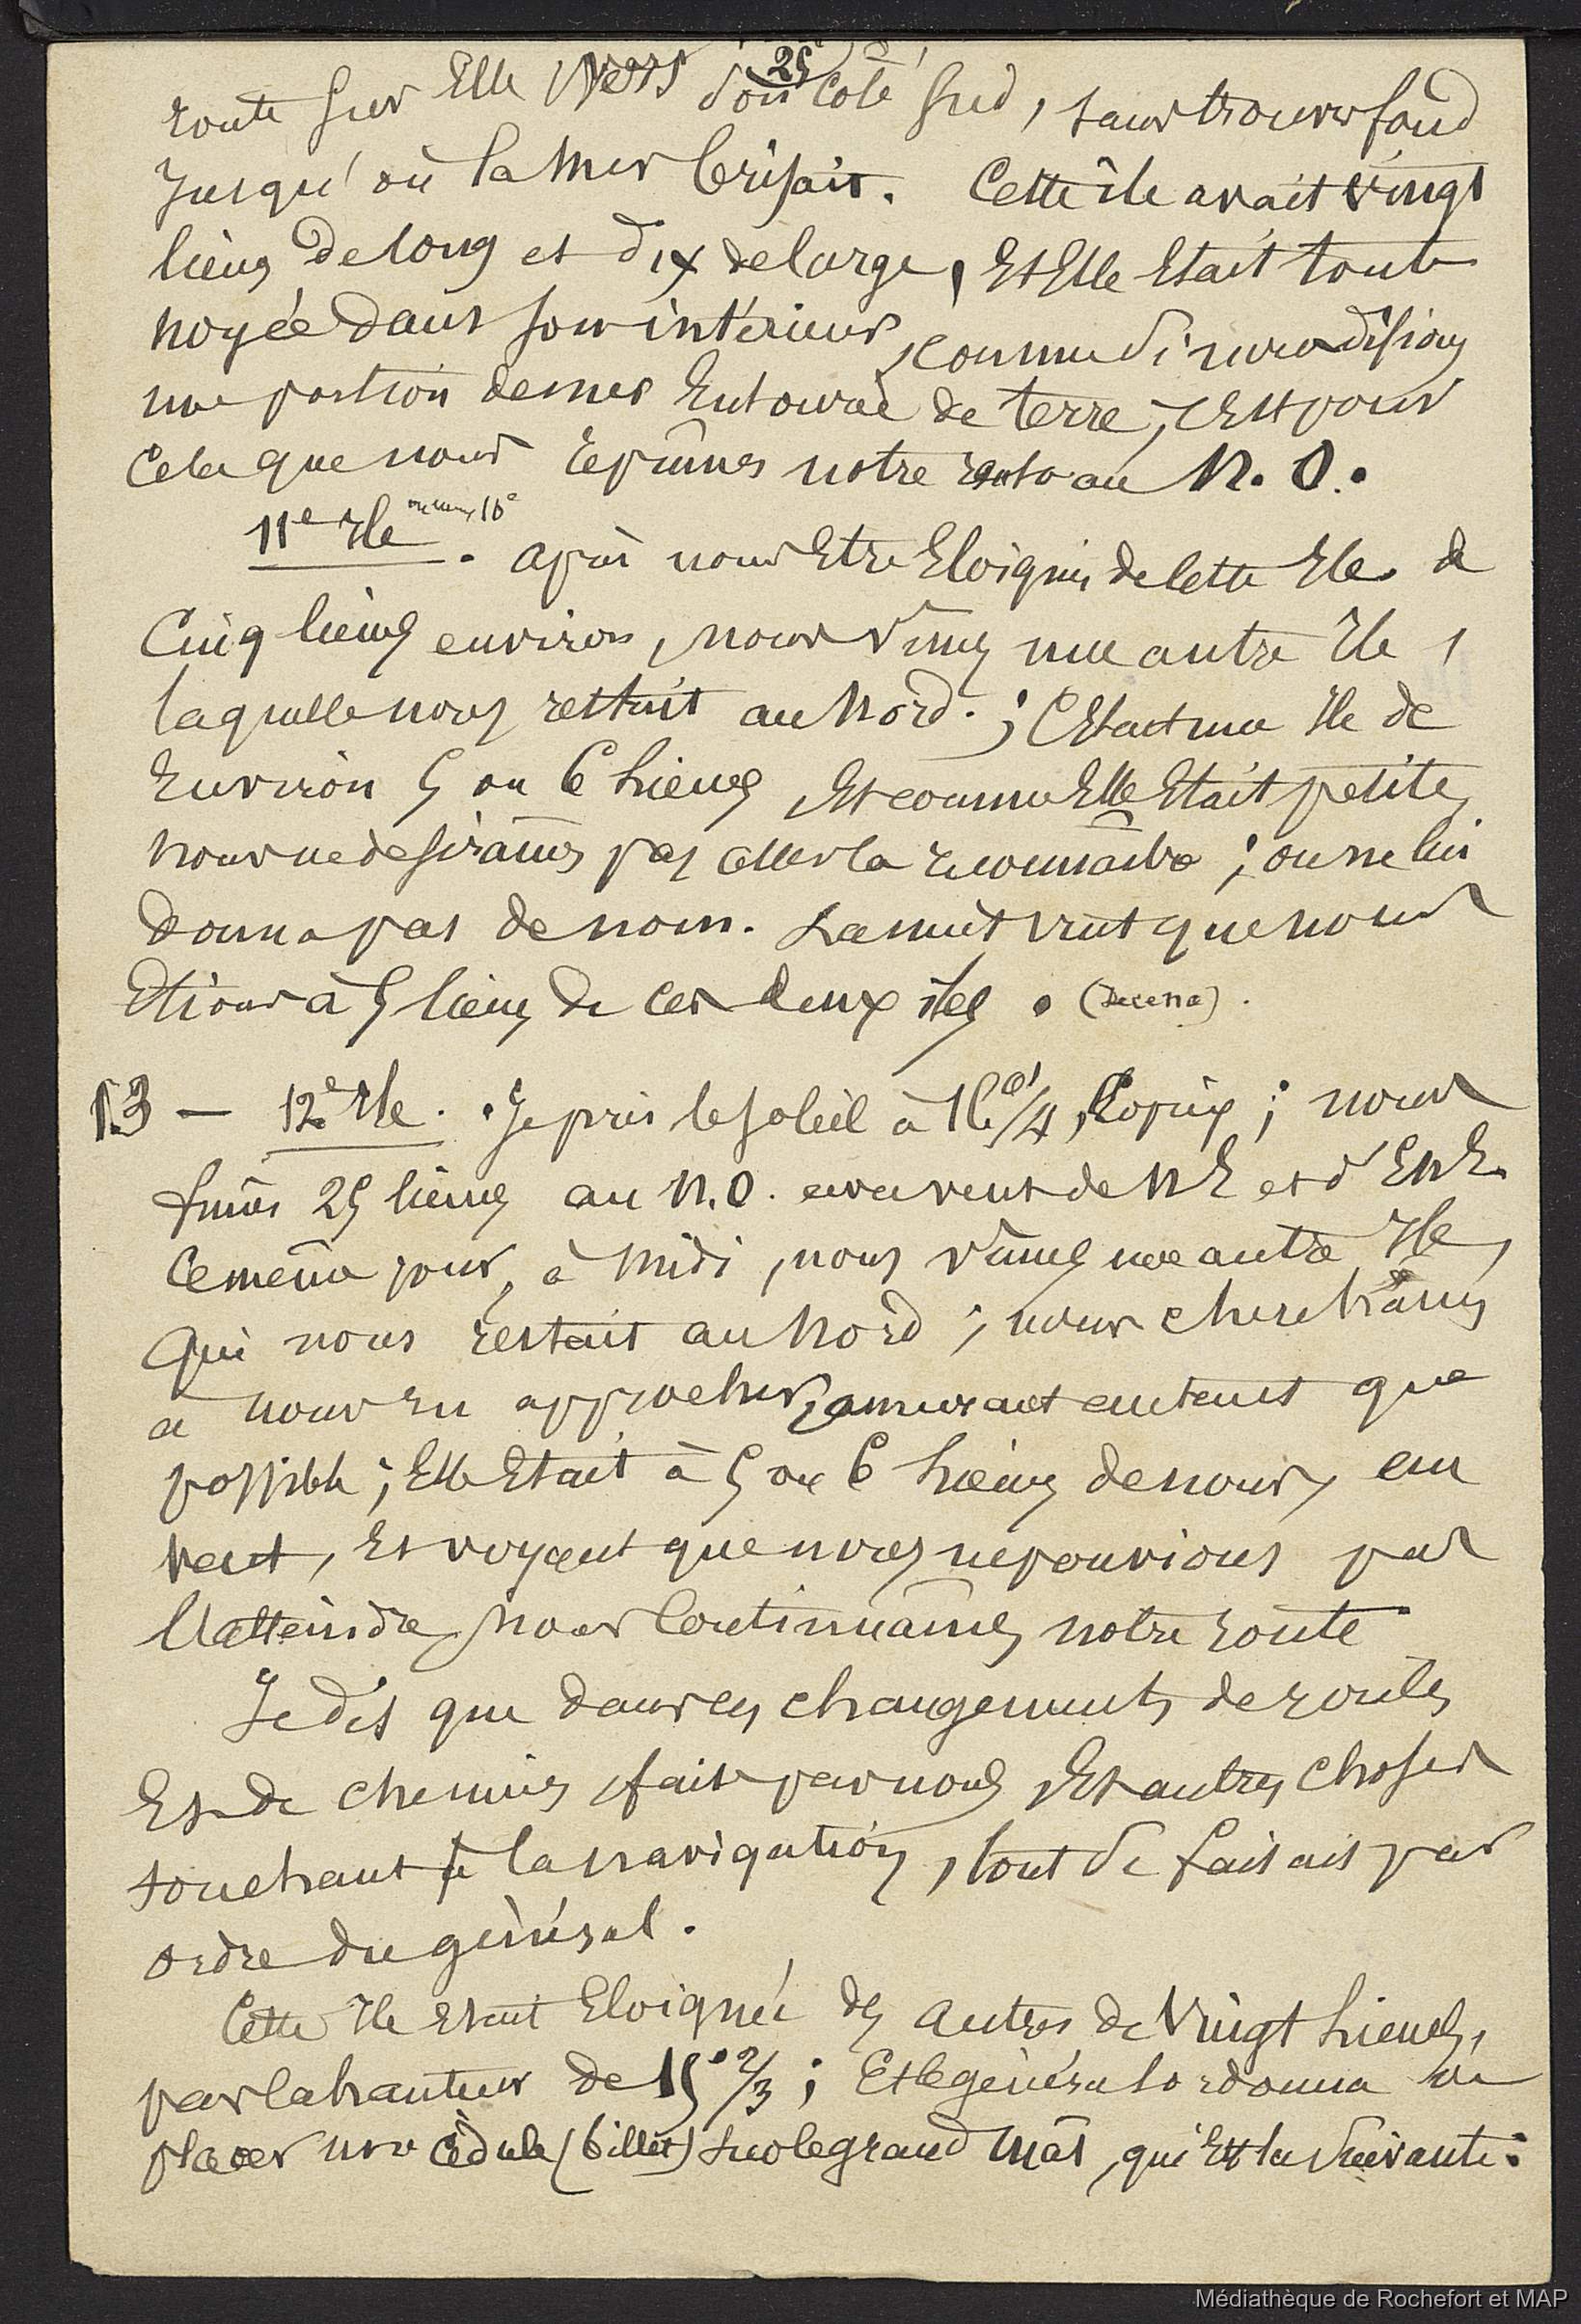 25
route sur Elle vers son Coté Sud, sans trouver fond
Jusqu' où la Mer brisait. Cette île avait vingt
lieues de long et dix de large, Et Elle Etait toute
noyée dans son intérieur, comme si nous disions
une portion de mer Entourée de terre, c'Est pour
Cela que nous reprîmes notre route au N. O.
11e Ile . après nous Etre Eloignés de cette Ile de
Cinq lieues environ, nous vîmes une autre Ile,
laquelle nous restait au Nord. ; C'Etait une Ile de
Environ 5 ou 6 Lieues Et comme Elle Etait petite,
nous ne desirâmes pas aller la reconnaître ; on ne lui
donna pas de nom. La nuit vint que nous
Etions à 5 lieues de ces deux îles . (Decena).
13 — 12e Ile. Je pris le soleil à 16° 1/4, ; nous
fîmes 25 lieues au N.O. avec vent de NE et d'ENE.
Ce même jour, à Midi, nous vîmes une autre Ile,
Qui nous restait au Nord ; nous cherchâmes
à nous en approcher, amurant autant que
possible ; Elle Etait à 5 ou 6 Lieues de nous, au
vent, Et voyant que nous ne pouvions pas
l'atteindre, nous Continuâmes notre route
Je dis que dans les changements de routes
Et de chemins faits par nous Et autres choses
touchant à la navigation, tout se faisait par
ordre du général.
Cette Ile Etait Eloignée des autres de Vingt Lieues,
par la hauteur de 15° 2/3 ; Et le général ordonna de
placer une Cèdule (billet) sur le grand Mât, qui Est la Suivante :
Médiathèque de Rochefort et MAP